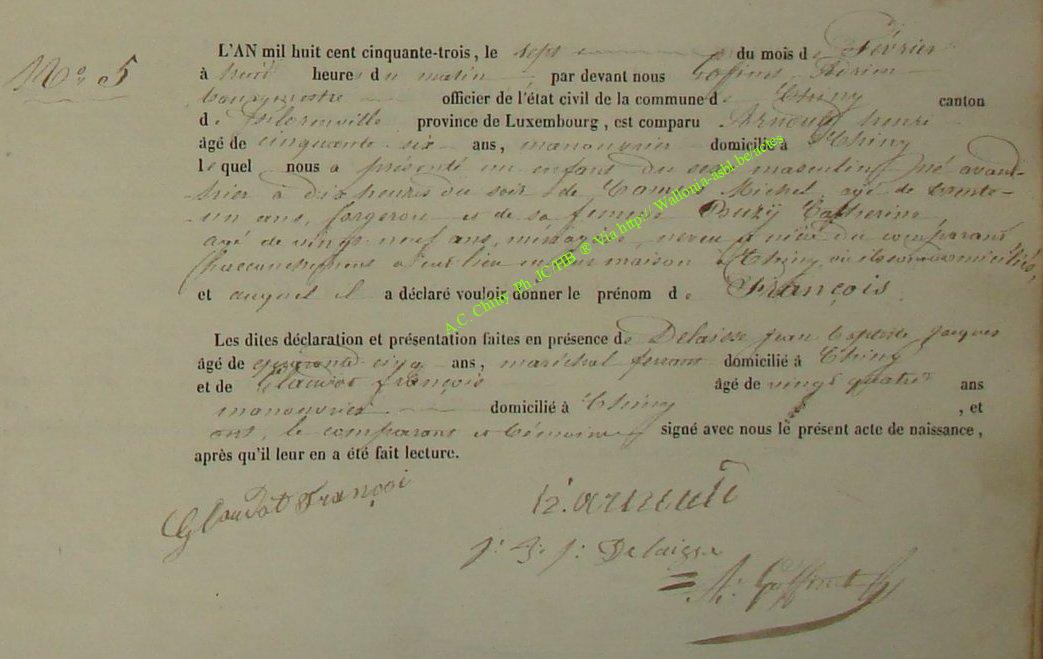 N° 5
L'AN mil huit cent cinquante-trois, le sept du mois de Février
à huit heures du matin, par devant nous Goffinet Adrien
bourgmestre officier de l'état civil de la commune de Chiny canton
de Florenville province de Luxembourg, est comparu Arnould henri
âgé de cinquante six ans, manouvrier domicilié à Chiny
lequel nous a présenté un enfant du sexe masculin né avant
hier à dix heures du soir de Michel, agé de trente-
un ans, forgeron et de sa femme Catherine,
agé de vingt neuf ans, ménagère, neveu et nièce du comparant
l'accouchement a eu lieu en leur maison à Chiny, où ils sont domiciliés,
et auquel il a déclaré vouloir donner le prénom de François.
Les dites déclaration et présentation faites en présence de Delaisse jean baptiste jacques
âgé de quarante cinq ans, maréchal ferrant domicilié à Chiny
et de Glaudot françois âgé de vingt quatre ans
manouvrier domicilié à Chiny, et
ont, le comparant et témoins signé avec nous le présent acte de naissance,
après qu'il leur en a été fait lecture.
Glaudot François
h. arnould
j: B: j: Delaisse
A. Goffinet
A.C. Chiny Ph. JC/HB ® Via http://Wallonia-asbl.be/actes